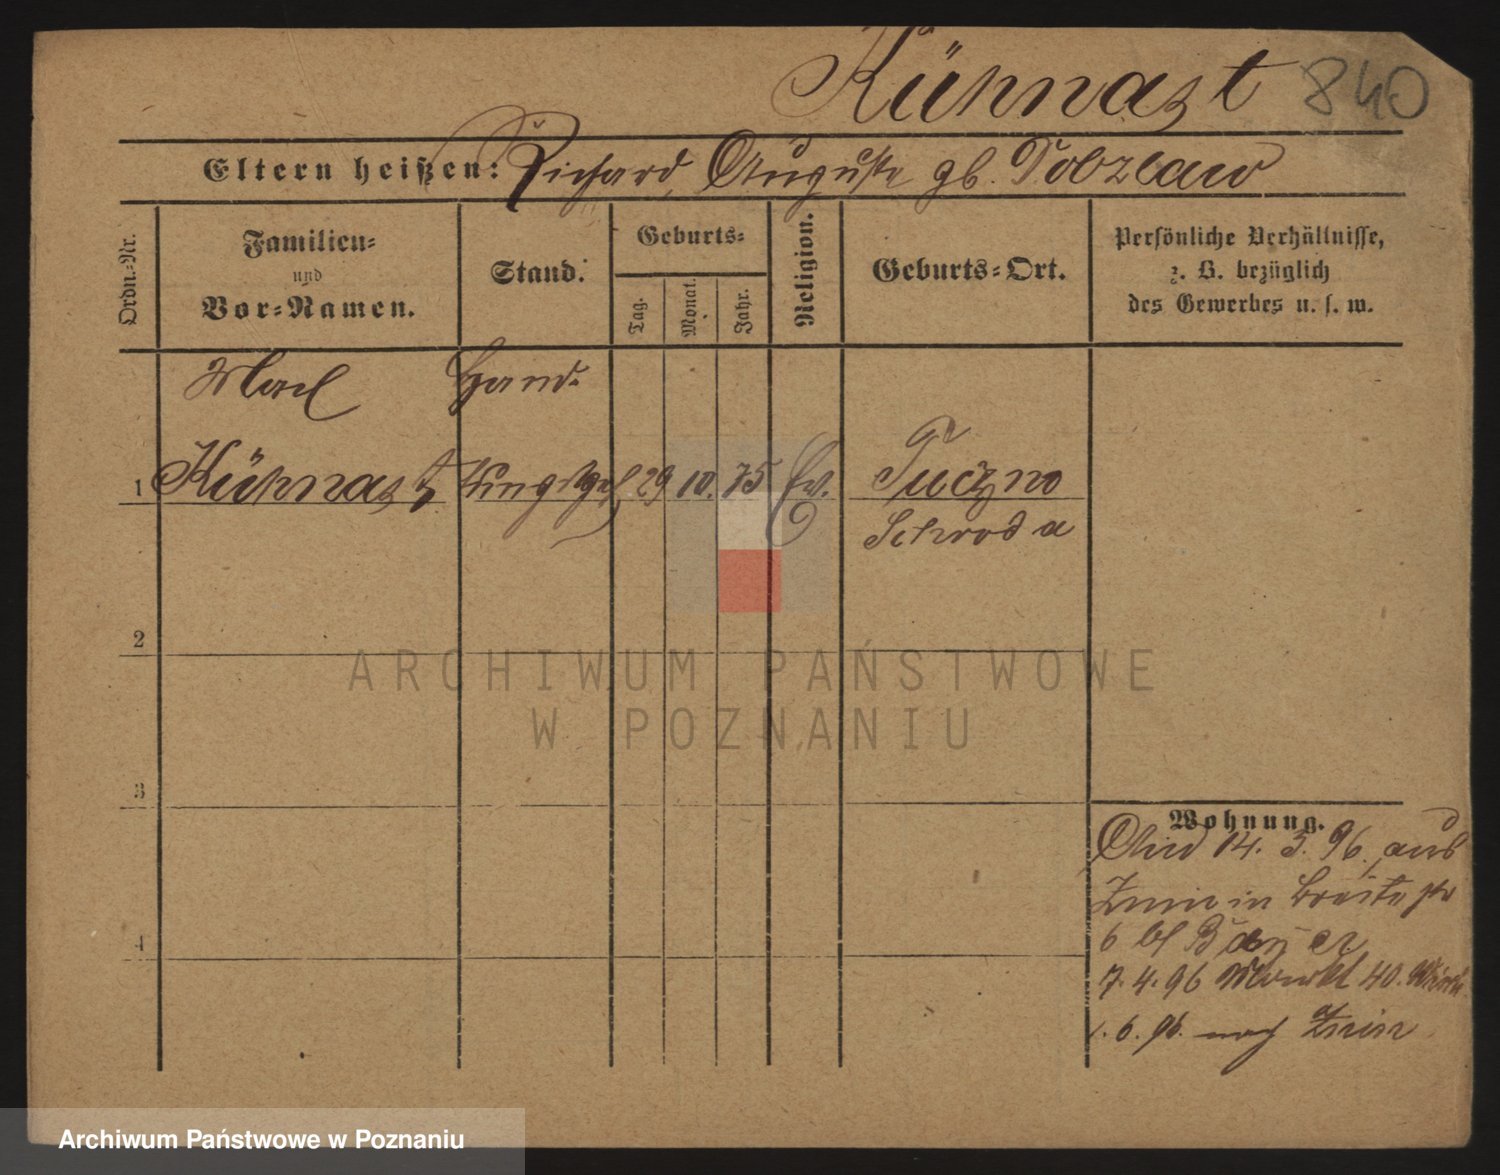 Kühnast 840
Eltern heißen: Richard, Auguste gb.
Ordn.-Nr.
Familien-
und
Vor-Namen.
Stand.
Geburts-
Tag.
Monat.
Jahr.
Religion.
Geburts-Ort.
Persönliche Verhältnisse,
z. B. bezüglich
des Gewerbes u. s. w.
Hand-
1 Kühnast 29 10. 75 Ev. Tuczno
Schroda
2
3
4
Wohnung.
14. 3. 96, aus
Znin in Breitestr
6 bei
7. 4. 96 Markt 40.
1. 6. 96. nach Znin
ARCHIWUM PAŃSTWOWE
W POZNANIU
Archiwum Państwowe w Poznaniu